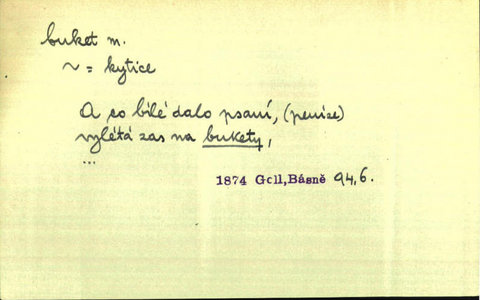 buket m.
~ = kytice
A co bílé dalo psaní, (peníze)
vylétá zas na bukety,
...
1874 Goll,Básně 94,6.